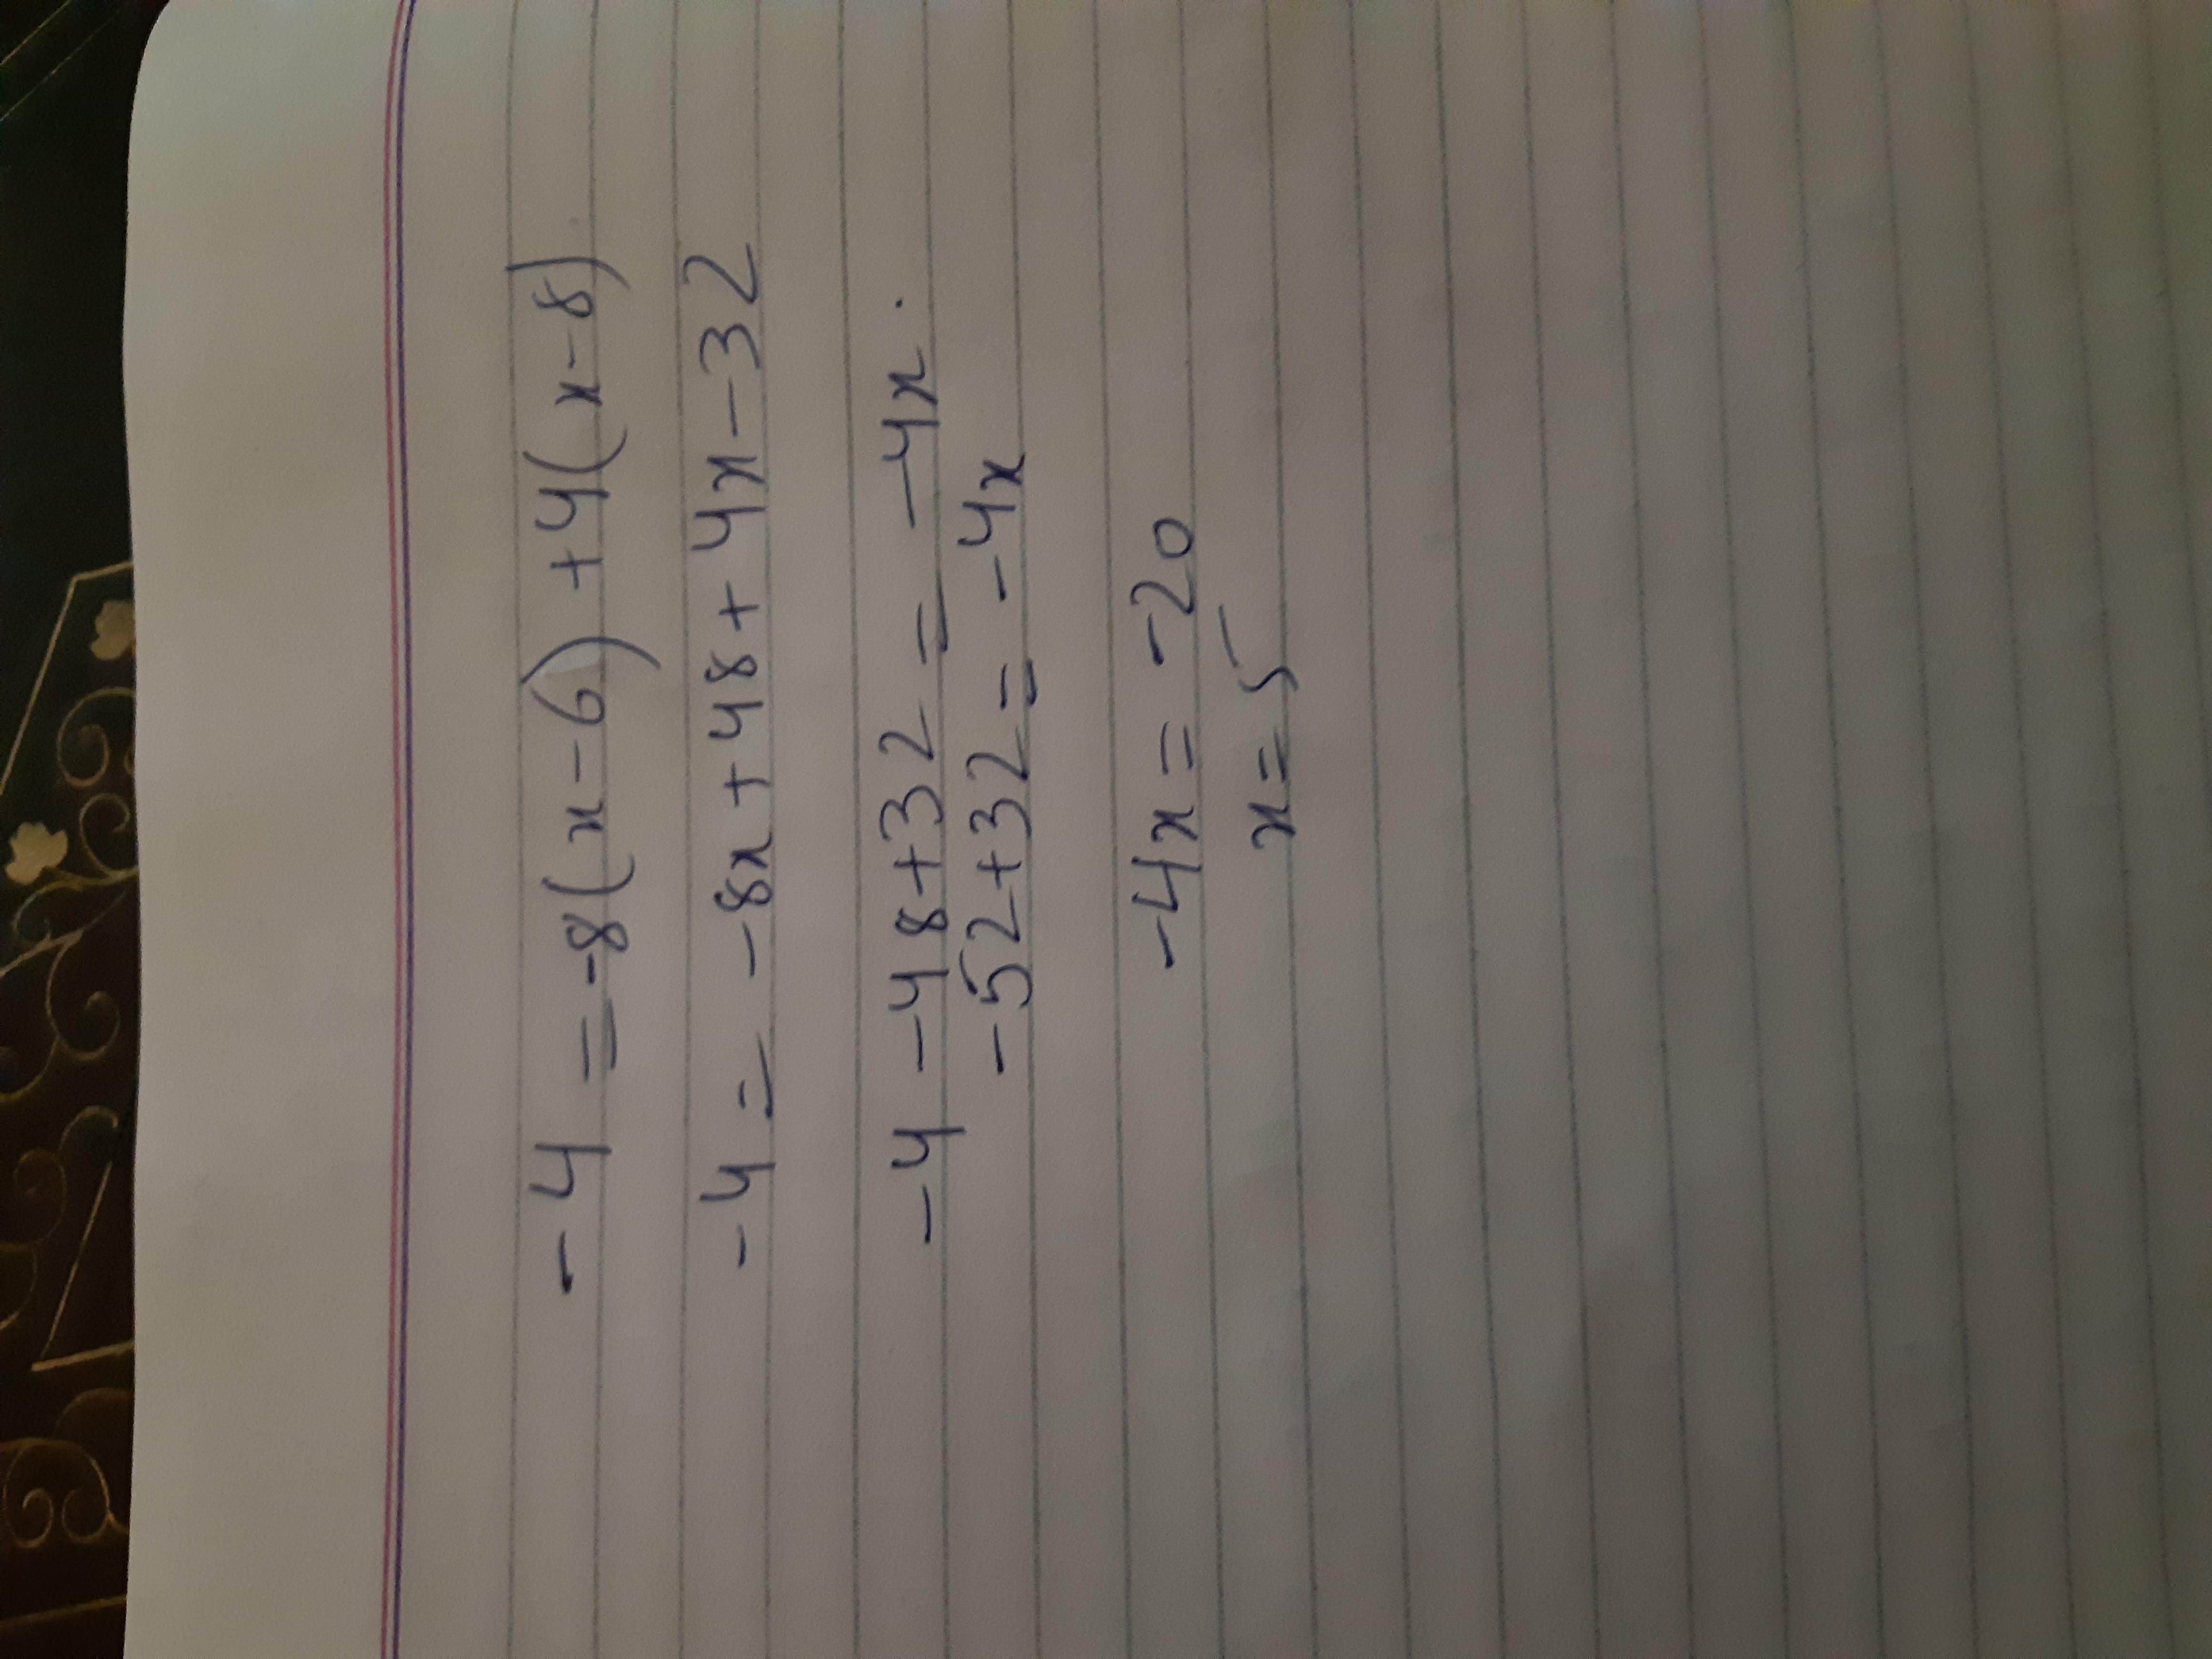 -4 = -8(x-6) + 4(x-8)
-4 = -8x + 48 + 4x - 32
-4 - 48 + 32 = -4x.
-52 + 32 = -4x
-4x = -20
x = 5